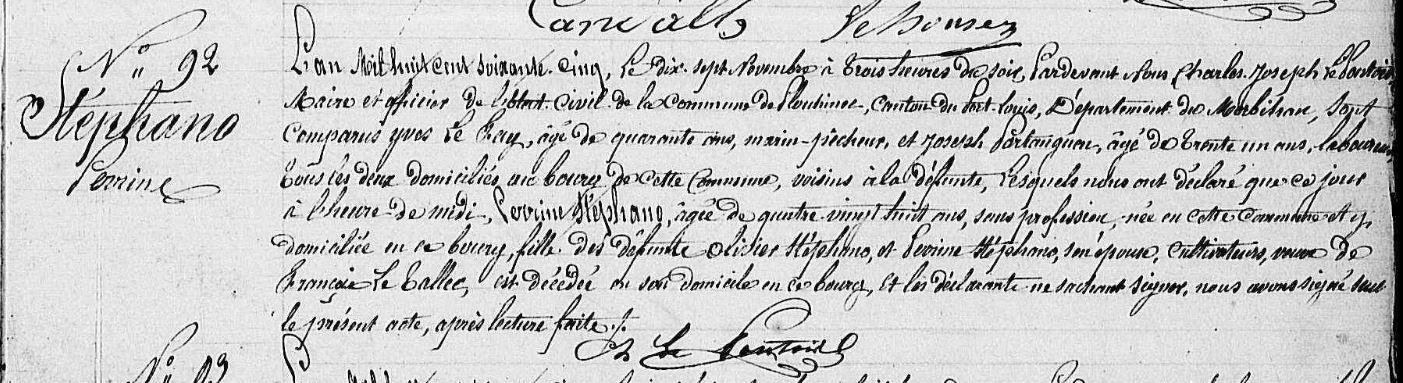 N° 92
Stéphano
Perrine
L'an Mil huit cent soixante-cinq, le dix-sept Novembre à trois heures du soir, Pardevant Nous Charles Joseph
Maire et officier de l'état-civil de la commune de Plouhinec, canton du Port-Louis, Département du Morbihan, sont
comparus Yves Le Bray, âgé de quarante ans, marin-pêcheur, et Joseph, âgé de trente un ans, laboureur,
tous les deux domiciliés au bourg de cette commune, voisins à la défunte, lesquels nous ont déclaré que ce jour
à l'heure de midi, Perrine Stéphano, âgée de quatre-vingt huit ans, sans profession, née en cette commune et y
domiciliée en ce bourg, fille des défunts Olivier Stéphano, et Perrine Stéphano, son épouse, cultivateurs, veuve de
François Le Tallec, est décédée en son domicile en ce bourg, et les déclarants ne sachant signer, nous avons signé seul
le présent acte, après lecture faite ./.
N° 93